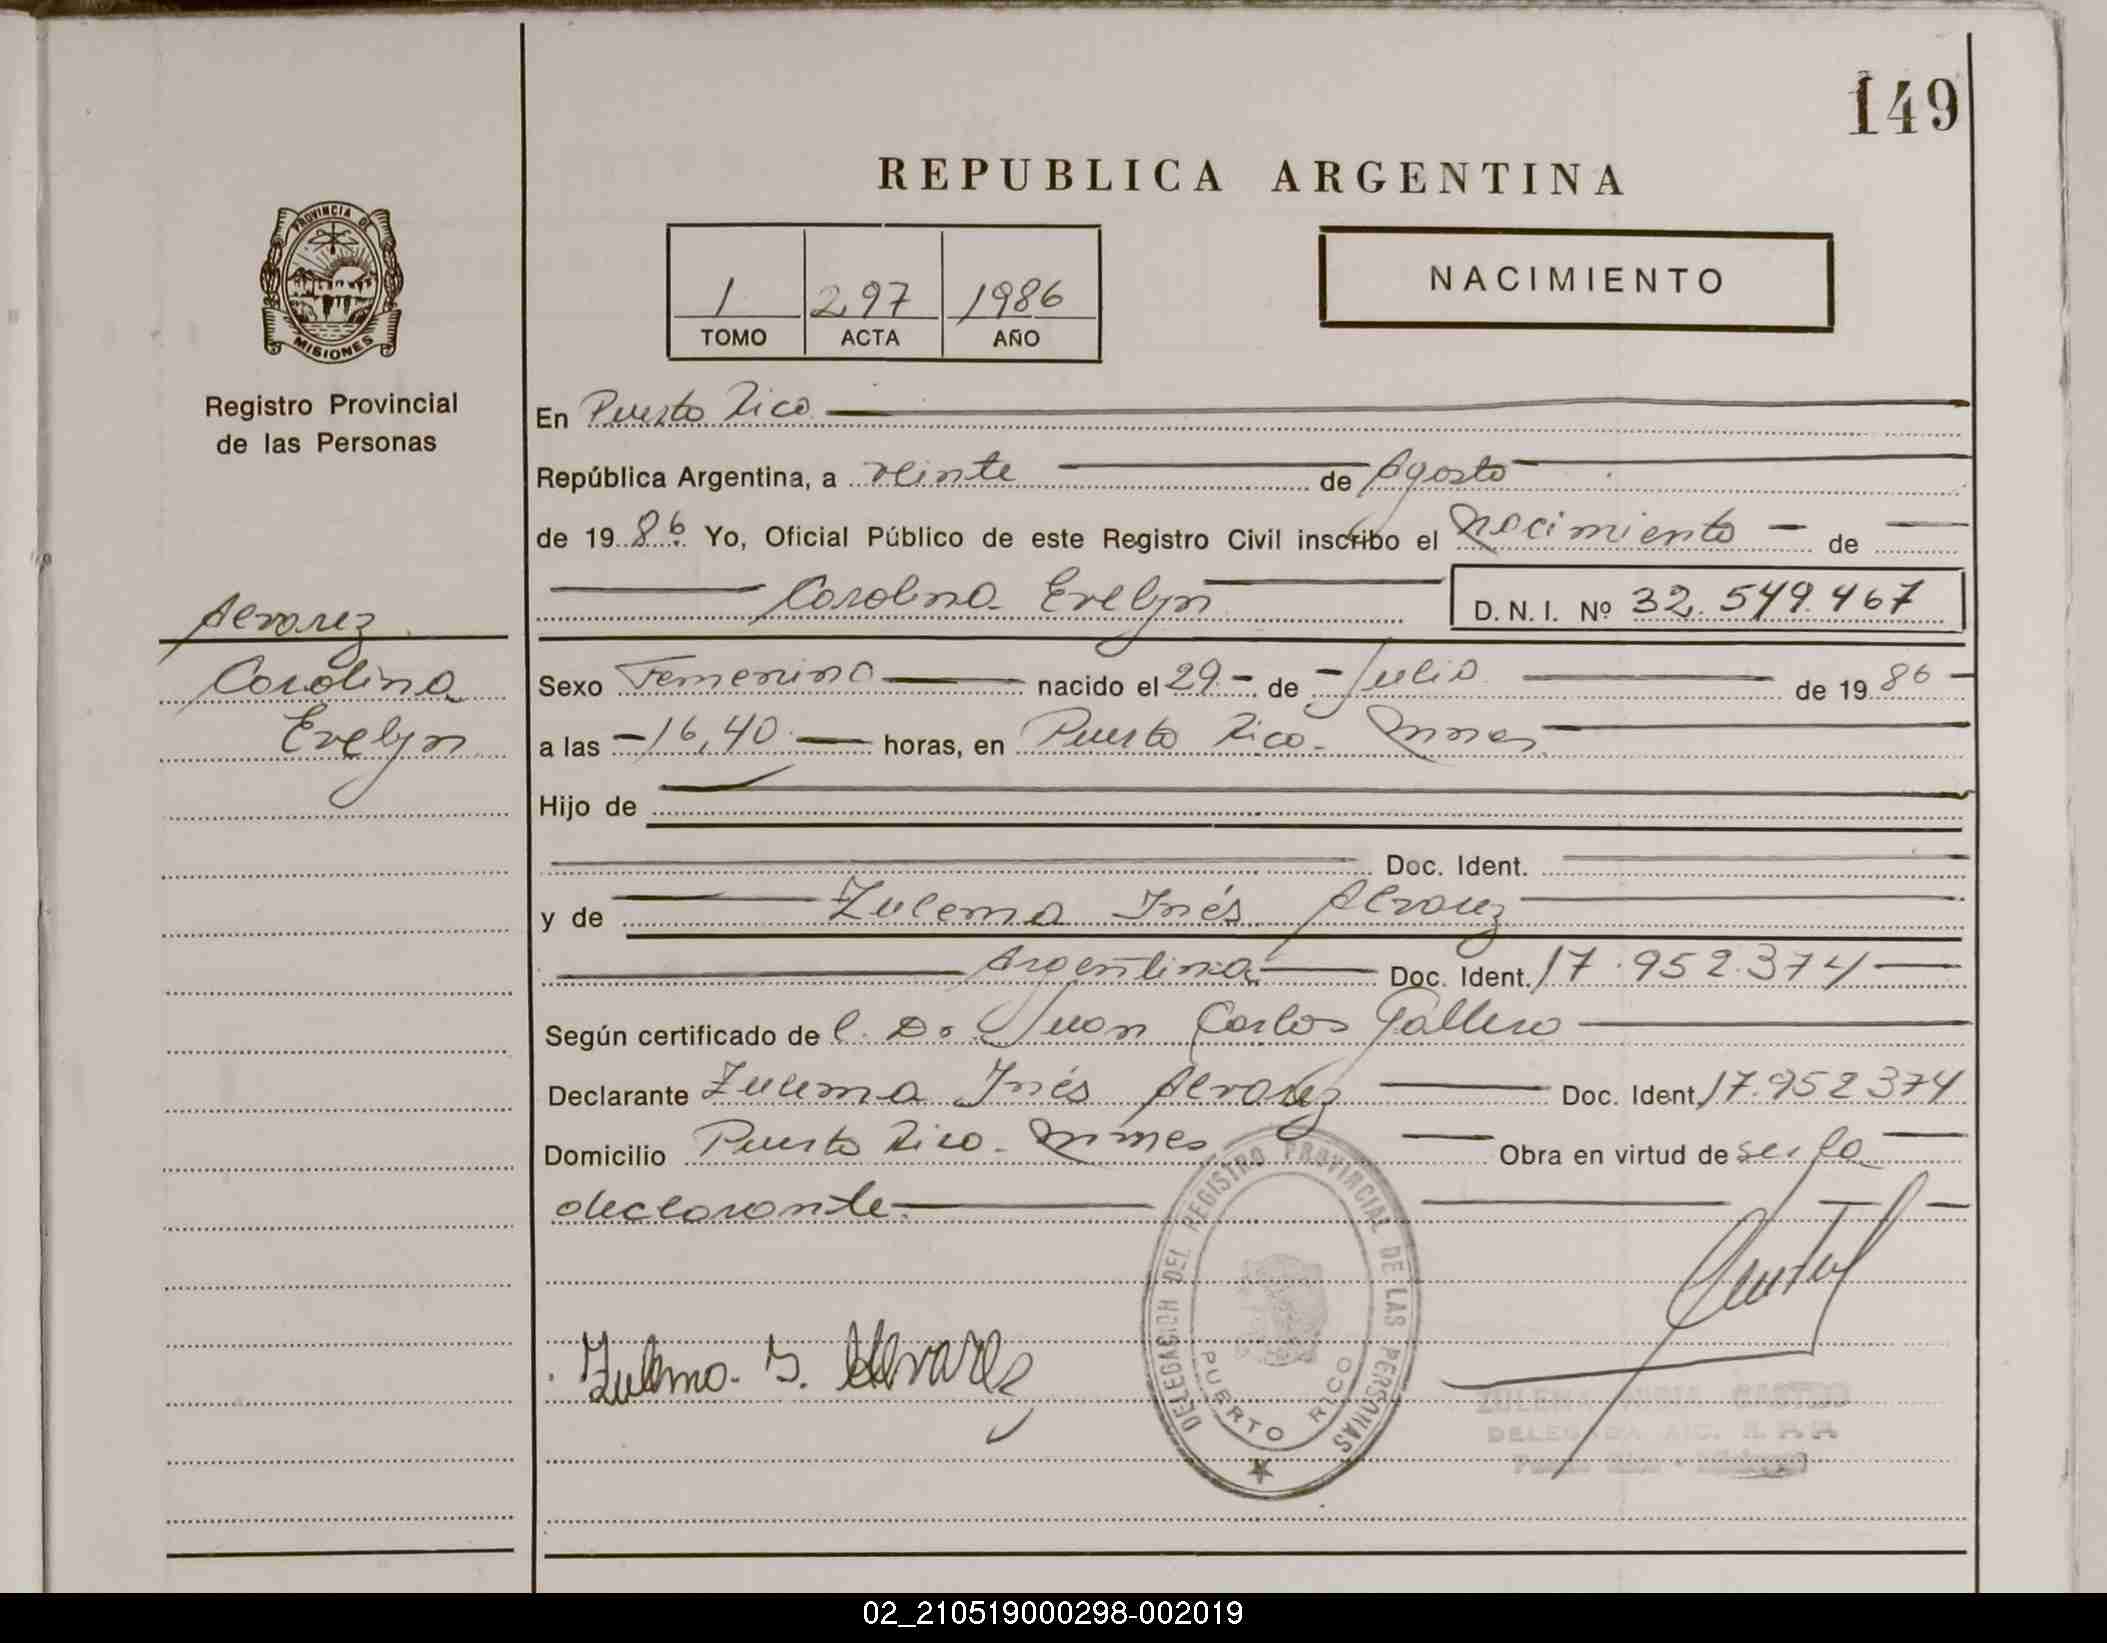 149
REPUBLICA ARGENTINA
PROVINCIA DE
MISIONES
Registro Provincial
de las Personas
1 297 1986
TOMO ACTA AÑO
NACIMIENTO
En Puerto Rico
República Argentina, a veinte de Agosto
de 1986 Yo, Oficial Público de este Registro Civil inscribo el Nacimiento de
Carolina Evelyn D.N.I. Nº 32.549.467
Alvarez
Carolina
Evelyn
Sexo Femenino nacido el 29 de Julio de 1986
a las 16,40 horas, en Puerto Rico - Mnes
Hijo de
Doc. Ident.
y de Zulema Inés Alvarez
Argentina Doc. Ident. 17.952.374
Según certificado de l. Dr. Juan Carlos Gallero
Declarante Zulema Inés Alvarez Doc. Ident. 17.952374
Domicilio Puerto Rico - Mnes Obra en virtud de ser la
declarante.
Zulema I. Alvarez
DELEGACION DEL REGISTRO PROVINCIAL DE LAS PERSONAS
PUERTO RICO
ZULEMA CASTRO
DELEGADA
Puerto Rico - Misiones
02_210519000298-002019